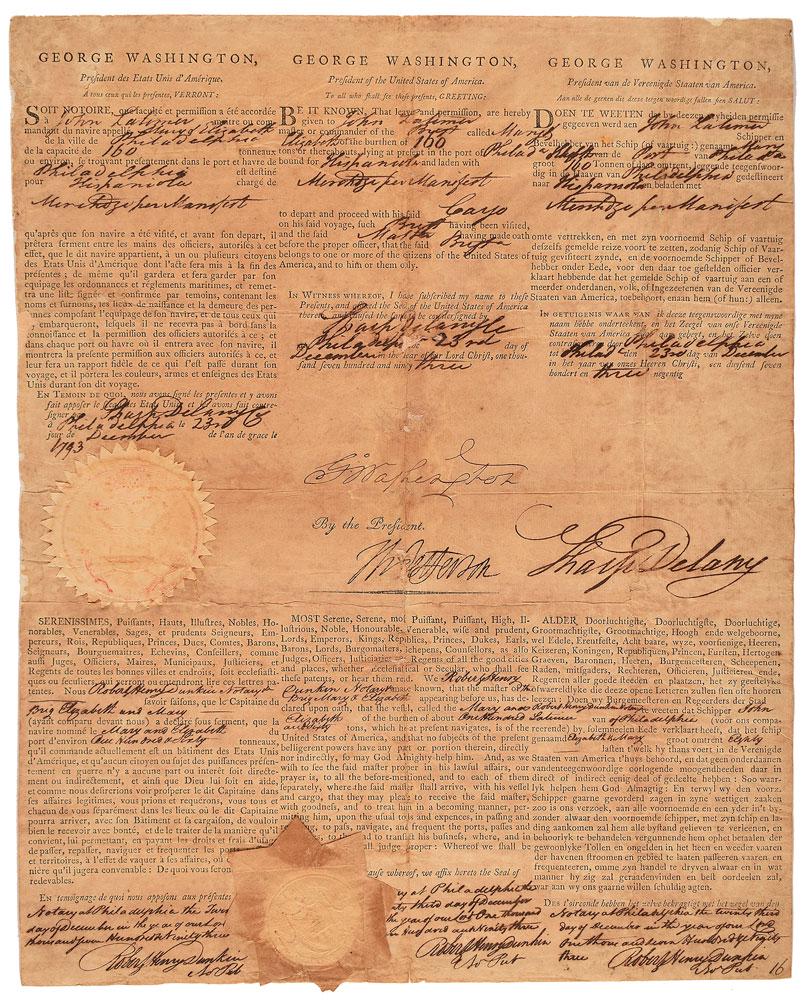 GEORGE WASHINGTON,
Préſident des Etats Unis d'Amérique,
A tous ceux qui les préſentes, VERRONT:
SOIT NOTOIRE, que faculté et permiſſion a été accordée
à John Latimer maitre ou com-
mandant du navire appellé Mary & Elizabeth
de la ville de Philadelphia
de la capacité de tonneaux
ou environ, ſe trouvant préſentement dans le port et havre de
Philadelphia et deſtiné
pour Hispaniola chargé de
Merchdze per Manifest
qu'après que ſon navire a été viſité, et avant ſon départ, il
prêtera ſerment entre les mains des officiers, autoriſés à cet
effet, que le dit navire appartient, à un ou pluſieurs citoyens
des Etats Unis d'Amérique dont l'acte ſera mis à la fin des
préſentes; de même qu'il gardera et fera garder par ſon
équipage les ordonnances et réglements maritimes, et remet-
tra une liſte ſignée et confirmée par temoins, contenant les
noms et ſurnoms, les lieux de naiſſance et la demeure des per-
ſonnes compoſant l'equipage de ſon navire, et de tous ceux qui
s'y embarqueront, leſquels il ne recevra pas à bord ſans la
connoiſſance et la permiſſion des officiers autoriſés à ce; et
dans chaque port ou havre ou il entrera avec ſon navire, il
montrera la preſente permiſſion aux officiers autoriſés à ce, et
leur fera un rapport fidèle de ce qui s'eſt paſſé durant ſon
voyage, et il portera les couleurs, armes et enſeignes des Etats
Unis durant ſon dit voyage.
EN TEMOIN DE QUOI, nous avons ſigné les préſentes et y avons
fait appoſer le ſceau des Etats Unis et fait contre-
ſigner Sharp Delany à
Philadelphia le 23rd
jour de December de l'an de grace le
1793
GEORGE WASHINGTON,
Preſident of the United States of America.
To all who ſhall ſee theſe preſents, GREETING:
BE IT KNOWN, That leave and permiſſion, are hereby
given to John Latimer
maſter or commander of the called Mary &
Elizabeth of the burthen of 160
tons or thereabouts, lying at preſent in the port of Philada
bound for Hispaniola and laden with
Merchdze per Manifest
to depart and proceed with his ſaid Cargo
on his ſaid voyage, ſuch Brigg having been viſited,
and the ſaid Master having made oath
before the proper officer, that the ſaid Brigg
belongs to one or more of the citizens of the United States of
America, and to him or them only.
IN WITNESS WHEREOF, I have ſubſcribed my name to theſe
Preſents, and affixed the Seal of the United States of America
thereto, and cauſed the ſame to be counterſigned by
Sharp Delany at
Philadelphia 23rd day of
December in the year of our Lord Chriſt, one thou-
ſand ſeven hundred and ninety three
GEORGE WASHINGTON,
Preſident van de Vereenigde Staaten van America.
Aan alle de geenen die deeze tegenwoordige ſullen ſien SALUT:
DOEN TE WEETEN dat by deezen vryheid en permiſſie
gegeeven werd aen John Latimer
Schipper en
Bevelhebber van het (Schip of vaartuig:) genaamt Mary
van Philada
groot Tonnen of daar omtrent, leggende tegenwoor-
dig in de Haaven van Philadelphia gedeſtineert
naar Hispaniola en beladen met
Merchdze per Manifest
omte vertrekken, en met zyn voornoemd Schip of vaartuig
deſzelfs gemelde reize voort te zetten, zodanig Schip of Vaar-
tuig geviſiteert zynde, en de voornoemde Schipper of Bevel-
hebber onder Eede, voor den daar toe geſtelden officier ver-
klaart hebbende dat het gemelde Schip of vaartuig aan een of
meerder onderdanen, volk, of Ingezeetenen van de Vereenigde
Staaten van America, toebehoort, en aan hem (of hun:) alleen.
IN GETUIGENIS WAAR VAN ik deeze teegenswoordige met myne
naam hebbe ondertekent en het Zeegel van onſe Vereenigde
Staaten van America aan gehegt, en het zelve doen
contraſigneeren door Sharp Delany
tot Philad den 23rd dag van December
in het jaar van onzes Heeren Chriſti, een duyſend ſeven
hondert en three negentig
G:Washington
By the Preſident.
Th: Jefferson
Sharp Delany
SERENISSIMES, Puiſſants, Hauts, Illuſtres, Nobles, Ho-
norables, Venerables, Sages, et prudents Seigneurs, Em-
pereurs, Rois, Republiques, Princes, Ducs, Comtes, Barons,
Seigneurs, Bourguemaitres, Echevins, Conſeillers, comme
auſſi Juges, Officiers, Maires, Municipaux, Juſticiers, et
Regents de toutes les bonnes villes et endroits, ſoit eccléſiaſti-
ques ou ſeculiers, qui verront ou entendront lire ces lettres pa-
tentes. Nous Robert Henry Dunkin Notary &
avoir faiſons, que le Capitaine du
Brig Elizabeth and Mary
(ayant comparu devant nous) a déclaré ſous ſerment, que la
navire nommé le Mary and Elizabeth du
port d'environ One Hundred & Sixty tonneaux,
qu'il commande actuellement eſt un bâtiment des Etats Unis
d'Amérique, et qu'aucun citoyen ou ſujet des puiſſances préſen-
tement en guerre n'y a aucune part ou interêt ſoit directe-
ment ou indirectement, et ainſi que Dieu lui ſoit en aide,
et comme nous deſirerions voir proſperer le dit Capitaine dans
ſes affaires legitimes, vous prions et requérons, vous tous et
chacun de vous ſéparément dans les lieux où le dit Capitaine
pourra arriver, avec ſon Bâtiment et ſa cargaiſon, de vouloir
bien le recevoir avec bonté, et de le traiter de la manière qu'il
convient, lui permettant, en payant les droits et frais d'uſage
de paſſer, repaſſer, naviguer et frequenter les ports
et territoires, à l'effet de vaquer à ſes affaires, où et
nière qu'il jugera convenable: De quoi vous ſerons
redevables.
En témoignage de quoi nous appoſons aux préſentes
Notary at Philadelphia the
of December in the year of our Lord
thousand seven Hundred & Ninety three
Robert Henry Dunkin
No Pub
MOST Serene, Serene, moſt Puiſſant, Puiſſant, High, Il-
luſtrious, Noble, Honourable, Venerable, wiſe and prudent,
Lords, Emperors, Kings, Republics, Princes, Dukes, Earls,
Barons, Lords, Burgomaſters, Schepens, Counſellors, as alſo
Judges, Officers, Juſticiaries & Regents of all the good cities
and places, whether eccleſiaſtical or ſecular, who ſhall ſee
theſe patents, or hear them read. We Robert Henry
Dunkin Notary make known, that the maſter of the
Brig Mary & Elizabeth appearing before us, has de-
clared upon oath, that the veſſel, called the Mary and
Elizabeth of the burthen of about One Hundred
and Sixty tons, which he at preſent navigates, is of the
United States of America, and that no ſubjects of the preſent
belligerent powers have any part or portion therein, directly
nor indirectly, ſo may God Almighty help him. And, as we
wiſh to ſee the ſaid maſter proſper in his lawful affairs, our
prayer is, to all the before-mentioned, and to each of them
ſeparately, where the ſaid maſter ſhall arrive, with his veſſel
and cargo, that they may pleaſe to receive the ſaid maſter,
with goodneſs, and to treat him in a becoming manner, per-
mitting him, upon the uſual tolls and expences, in paſſing
and repaſſing, to paſs, navigate, and frequent the ports, paſſes and
to tranſact his buſineſs, where, and in
ſhall judge proper: Whereof we ſhall be
cauſe whereof, we affix hereto the Seal of
Notary at Philadelphia the
third day of December
the year of our Lord One thousand
Hundred and Ninety three
Robert Henry Dunkin
No Pub
ALDER Doorluchtigſte, Doorluchtigſte, Doorluchtige,
Grootmachtigſte, Grootmachtige, Hoogh ende welgeboorne,
wel Edele, Erenfeſte, Acht baare, wyze, voorſienige, Heeren,
Keizeren, Koningen, Republiquen, Princen, Furſten, Hertogen,
Graeven, Baronnen, Heeren, Burgemeeſteren, Scheepenen,
Raden, mitſgaders, Rechteren, Officieren, Juſticieren ende
Regenten aller goede ſteeden en plaatzen, het zy geeſtelyke
of waereldlyke die deeze opene Letteren zullen ſien ofte hooren
leezen: Doen wy Burgemeeſteren en Regeerders der Stad
Robert Henry Dunkin Notary weeten dat de Schipper John
Latimer van of Philadelphia (voor ons compa-
reerende) by ſolemneelen Eede verklaart heeft, dat het ſchip
genaamd Elizabeth & Mary groot omtrent Eighty
laſten twelk hy thans voert in de Vereenigde
Staaten van America t'huys behoord, en dat geen onderdaanen
van de teegenwoordige oorlogende moogendheeden daar in
direct of indirect eenig deel of gedeelte hebben: Soo waar-
lyk helpen hem God Almagtig: En terwyl wy den voorz.
Schipper gaarne gevorderd zagen in zyne wettigen zaaken
zoo is ons verzoek, aan alle voornoemde en een yder in't by-
zonder alwaar den voornoemde ſchipper, met zyn ſchip en la-
ding aankomen zal hem alle byſtand gelieven te verleenen, en
behoorlyk te behandelen vergunnende hem ophet betaalen der
gewoonlyke Tollen en ongelden in het heen en weeder vaaren
der havenen ſtroomen en gebied te laaten paſſeeren vaaren en
frequenteeren, omme zyn handel te dryven alwaar en in wat
manner hy zig zal geraadenvinden en belt oordeelen zal,
waar aan wy ons gaarne willen ſchuldig agten.
Des t'oirconde hebben het zelve bekragtigt met het wegel van dezen
Notary at Philadelphia the twenty third
day of December in the year of our Lord
One thousand seven Hundred & Ninety
three
Robert Henry Dunkin
No Pub.
16